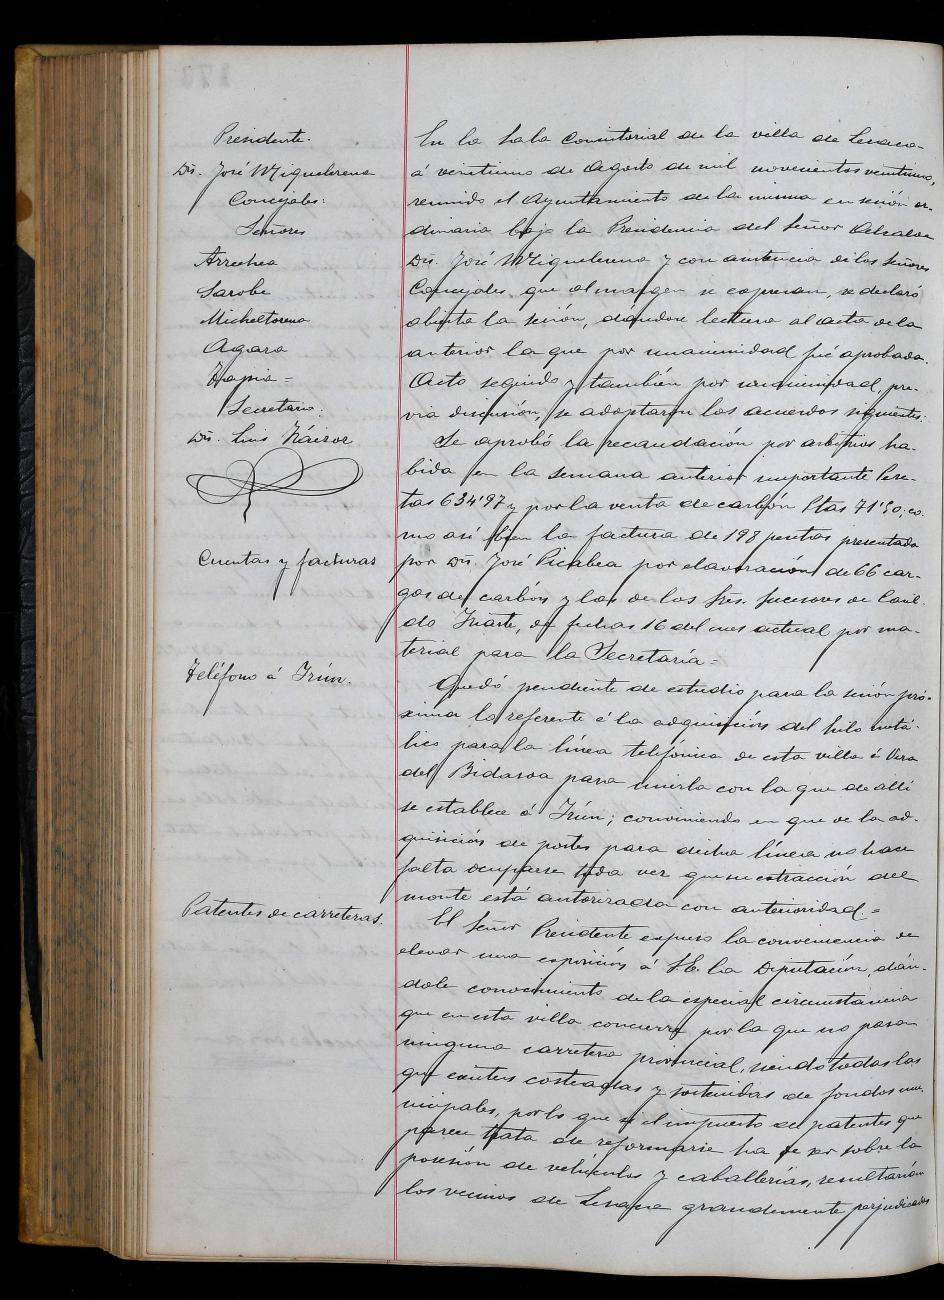 Presidente.
Dn. José Miguelerena
Concejales:
Señores
Arrechea
Sarobe
Micheltorena
Agara
Tapia =
Secretario:
Dn. Luis
Cuentas y facturas
Teléfono á Irún.
Patentes de carreteras.
En la Sala Consistorial de la villa de Lesaca
á veintiuno de Agosto de mil novecientos veintiuno,
reunido el Ayuntamiento de la misma en sesión or-
dinaria bajo la Presidencia del Señor Alcalde
Dn. José Miguelerena y con asistencia de los Señores
Concejales que al margen se expresan, se declaró
abierta la sesión, dándose lectura al acta de la
anterior la que por unanimidad fué aprobada.
Acto seguido y también por unanimidad, pre-
via discusión, se adoptaron los acuerdos siguientes.
Se aprobó la recaudación por arbitrios ha-
bida en la semana anterior importante Pese-
tas 634'97 y por la venta de carbón Ptas 71'50; co-
mo así bien la factura de 198 pesetas presentada
por Dn. José Picabea por elavoración de 66 car-
gas de carbón y las de los Sres. Sucesores de Cánd-
do Iriarte, de fechas 16 del mes actual por ma-
terial para la Secretaría =
Quedó pendiente de estudio para la sesión pró-
xima lo referente á la adquisición del hilo metá-
lico para la línea telefónica de esta villa á Vera
del Bidasoa para unirla con la que de allí
se establece á Irún; conviniendo en que de la ad-
quisición de postes para dicha línea no hace
falta ocuparse toda vez que su estracción del
monte está autorizada con anterioridad. =
El Señor Presidente expuso la conveniencia de
elevar una exposición á S.E. la Diputación, dán-
dole conocimiento de la especial circunstancia
que en esta villa concurre por la que no pasa
ninguna carretera provincial, siendo todas las
que existen costeadas y sostenidas de fondos mu-
nicipales, por lo que si el impuesto de patentes que
parece trata de reformarse ha de ser sobre la
posesión de vehículos y caballerías, resultarían
los vecinos de Lesaca grandemente perjudicados